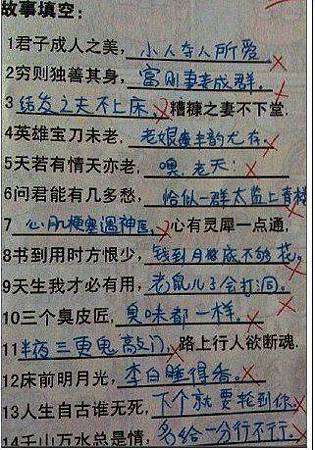 故事填空：
1君子成人之美，小人夺人所爱
2穷则独善其身，富则妻妾成群.
3 结发之夫不上床，糟糠之妻不下堂.
4英雄宝刀未老，老娘丰韵尤存.
5天若有情天亦老，噢，老天！
6问君能有几多愁，恰似一群太监上青楼
7 心肌梗塞遇神医，心有灵犀一点通，
8书到用时方恨少，钱到月底不够花.
9天生我才必有用，老鼠儿子会打洞.
10三个臭皮匠，臭味都一样.
11半夜三更鬼敲门，路上行人欲断魂.
12床前明月光，李白睡得香.
13人生自古谁无死，下个就要轮到你
14千山万水总是情，多给一分行不行.